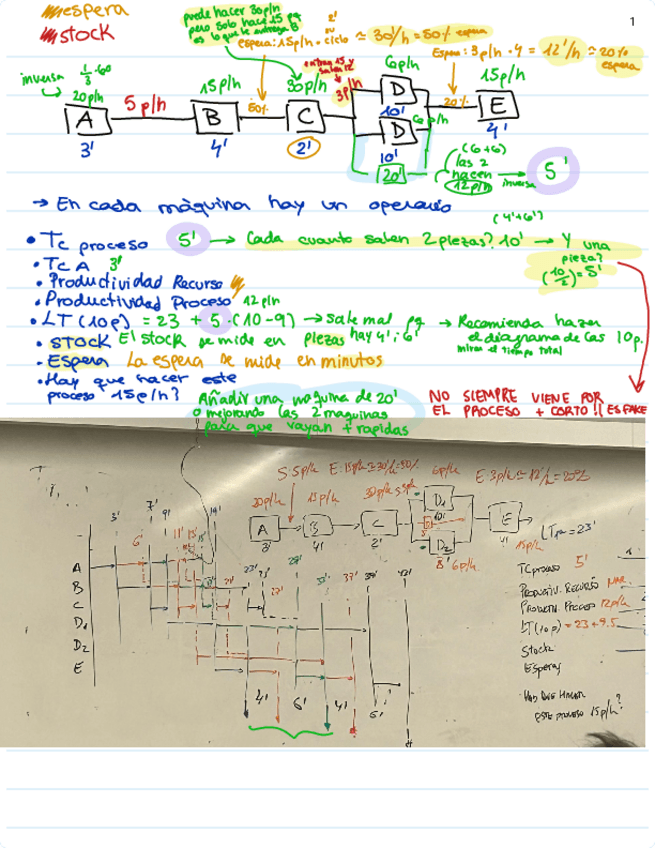 espera
stock
1
puede hacer 30p/h
pero solo hace 15 pq
es lo que le entrega B
espera: 15p/h · 2' su ciclo ≃ 30'/h = 50% espera
Espera: 3p/h · 4 = 12'/h = 20% espera
inversa 1/3 · 60
20p/h
5 p/h
15p/h
50%
30p/h
entran 15 y salen 12
3p/h
6p/h
6p/h
20%
15p/h
A
B
C
D
D
E
3'
4'
2'
10'
10'
20'
4'
(6+6)
las 2
hacen
12p/h
inversa
5'
→ En cada máquina hay un operario
(4'+6')
• Tc proceso 5' → Cada cuanto salen 2 piezas? 10' → Y una pieza?
(10/2) = 5'
• TC A 3'
• Productividad Recurso
• Productividad Proceso 12p/h
• LT (10p) = 23 + 5·(10-9) → sale mal pq hay 4' i 6' → Recomienda hacer el diagrama de las 10p.
mirar el tiempo total
• STOCK El stock se mide en piezas
- Espera La espera se mide en minutos
• Hay que hacer este
proceso 15p/h?
Añadir una maquina de 20'
o mejorando las 2 maquinas
para que vayan + rapidas
NO SIEMPRE VIENE POR
EL PROCESO + CORTO!! ES FAKE
S: 5p/h E: 15p/h ≃ 30'/h = 50%
6p/h
E: 3p/h ≃ 12'/h = 20%
20p/h
15p/h
30p/h
A
B
C
D1
D2
E
3'
4'
2'
4'
8'
6p/h
15p/h
LTpr = 23'
3'
6'
7'
9'
11'
13'
23'
27'
37'
A
B
C
D1
D2
E
4'
6'
4'
6'
TC proceso 5'
Productiv. Recurso
Productiv. Proceso 12p/h
LT (10p) = 23 + 9.5
Stock
Esperas
Hay que hacer
este proceso 15p/h?